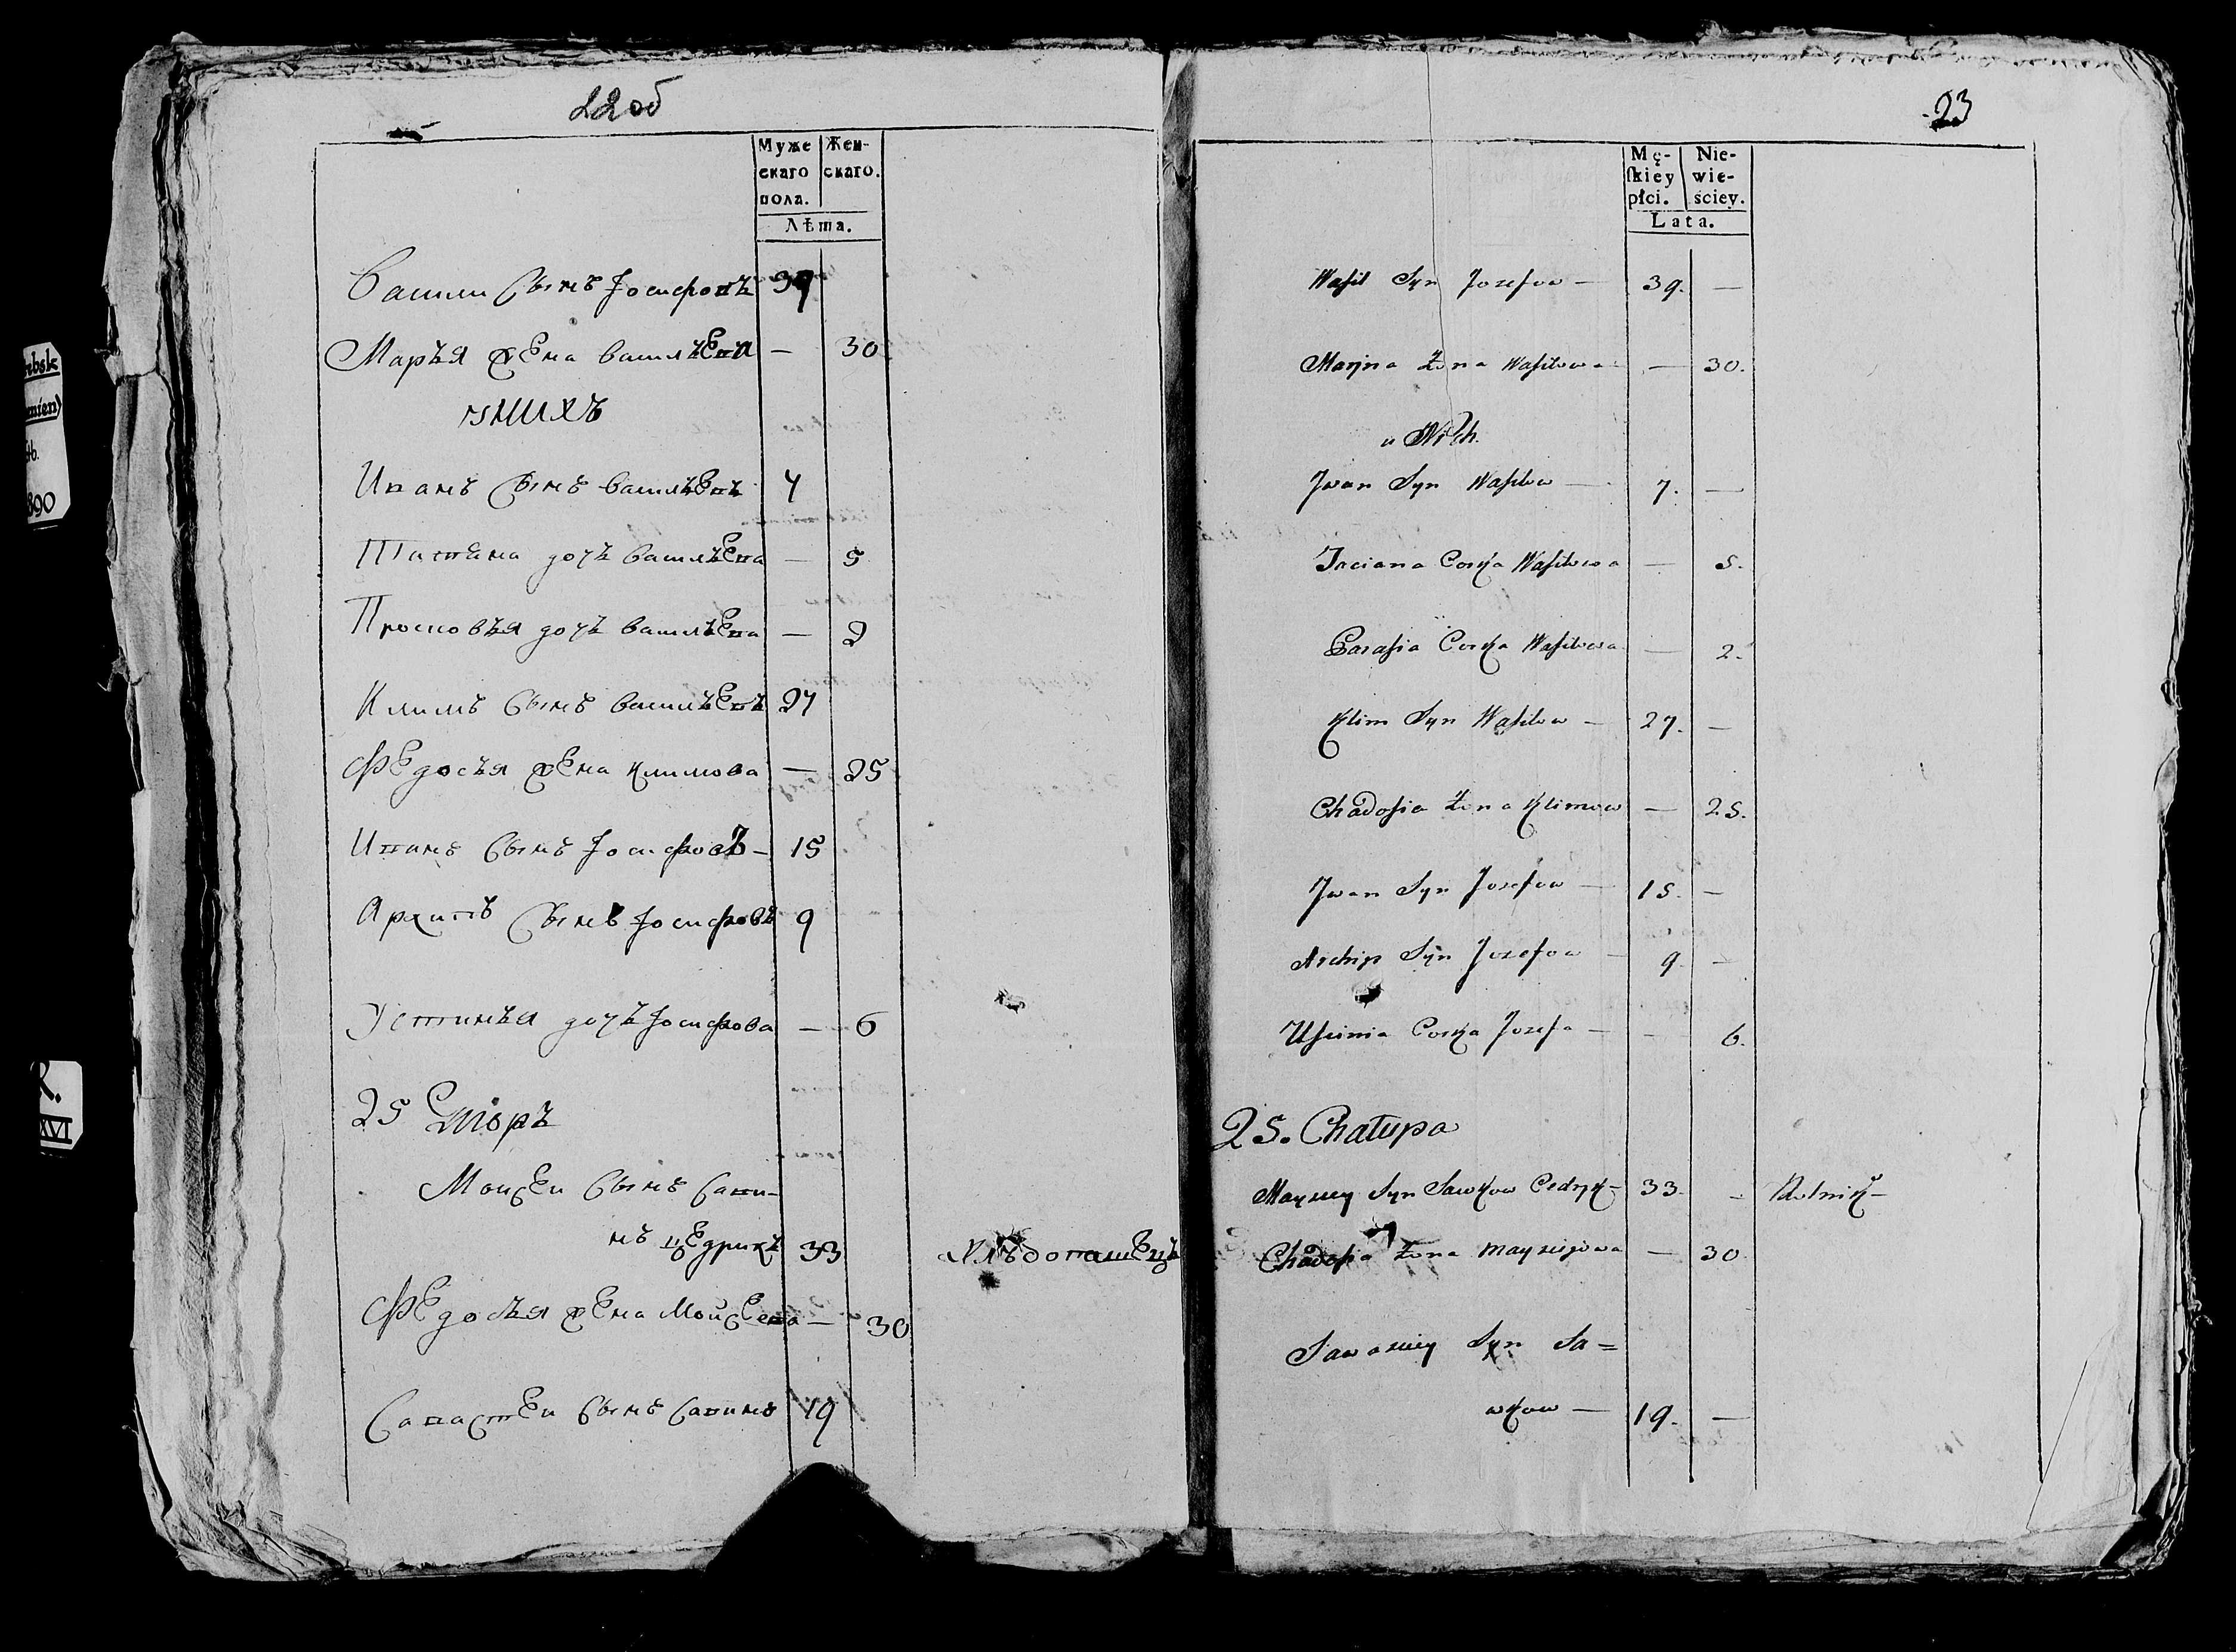 22 об
Муже Жен-
скаго скаго.
пола.
Лѣта.
Васили Сынъ Іосифовъ 37
Марья жена васильева — 30
у нихъ
Иванъ Сынъ васильевъ 7
Татьяна дочь васильева — 5
Просковья дочь васильева — 2
Климъ Сынъ васильевъ 27
Федосья жена климова — 25
Иванъ Сынъ Іосифовъ — 15
Архипъ Сынъ Іосифовъ 9
Устинья дочь Іосифова — 6
25 Двіоръ
Моисеи Сынъ Сави-
нъ цедрикъ 33 Хлѣбопашецъ
Федосья жена Моисеева — 30
Савастеи Сынъ Савинъ 19
23
Mę- Nie-
skiey wie-
płci. ściey.
Lata.
Wasil Syn Jozefow — 39. —
Maryna Żona Wasilowa — 30.
u Nich.
Jwan Syn Wasilow — 7. —
Taciana Corka Wasilowa — 5.
Parasia Corka Wasilowa — 2.
Klim Syn Wasilow — 27. —
Chadosia Żona Klimow — 25.
Jwan Syn Jozefow — 15. —
Archip Syn Jozefow — 9. —
Uscinia Corka Jozefa — — 6.
25. Chałupa
Maysiey Syn Sawkow Cedryk — 33. — Rolnik —
Chadosia Żona Maysiejowa — 30
Sawasciey Syn Sa=
wkow — 19. —